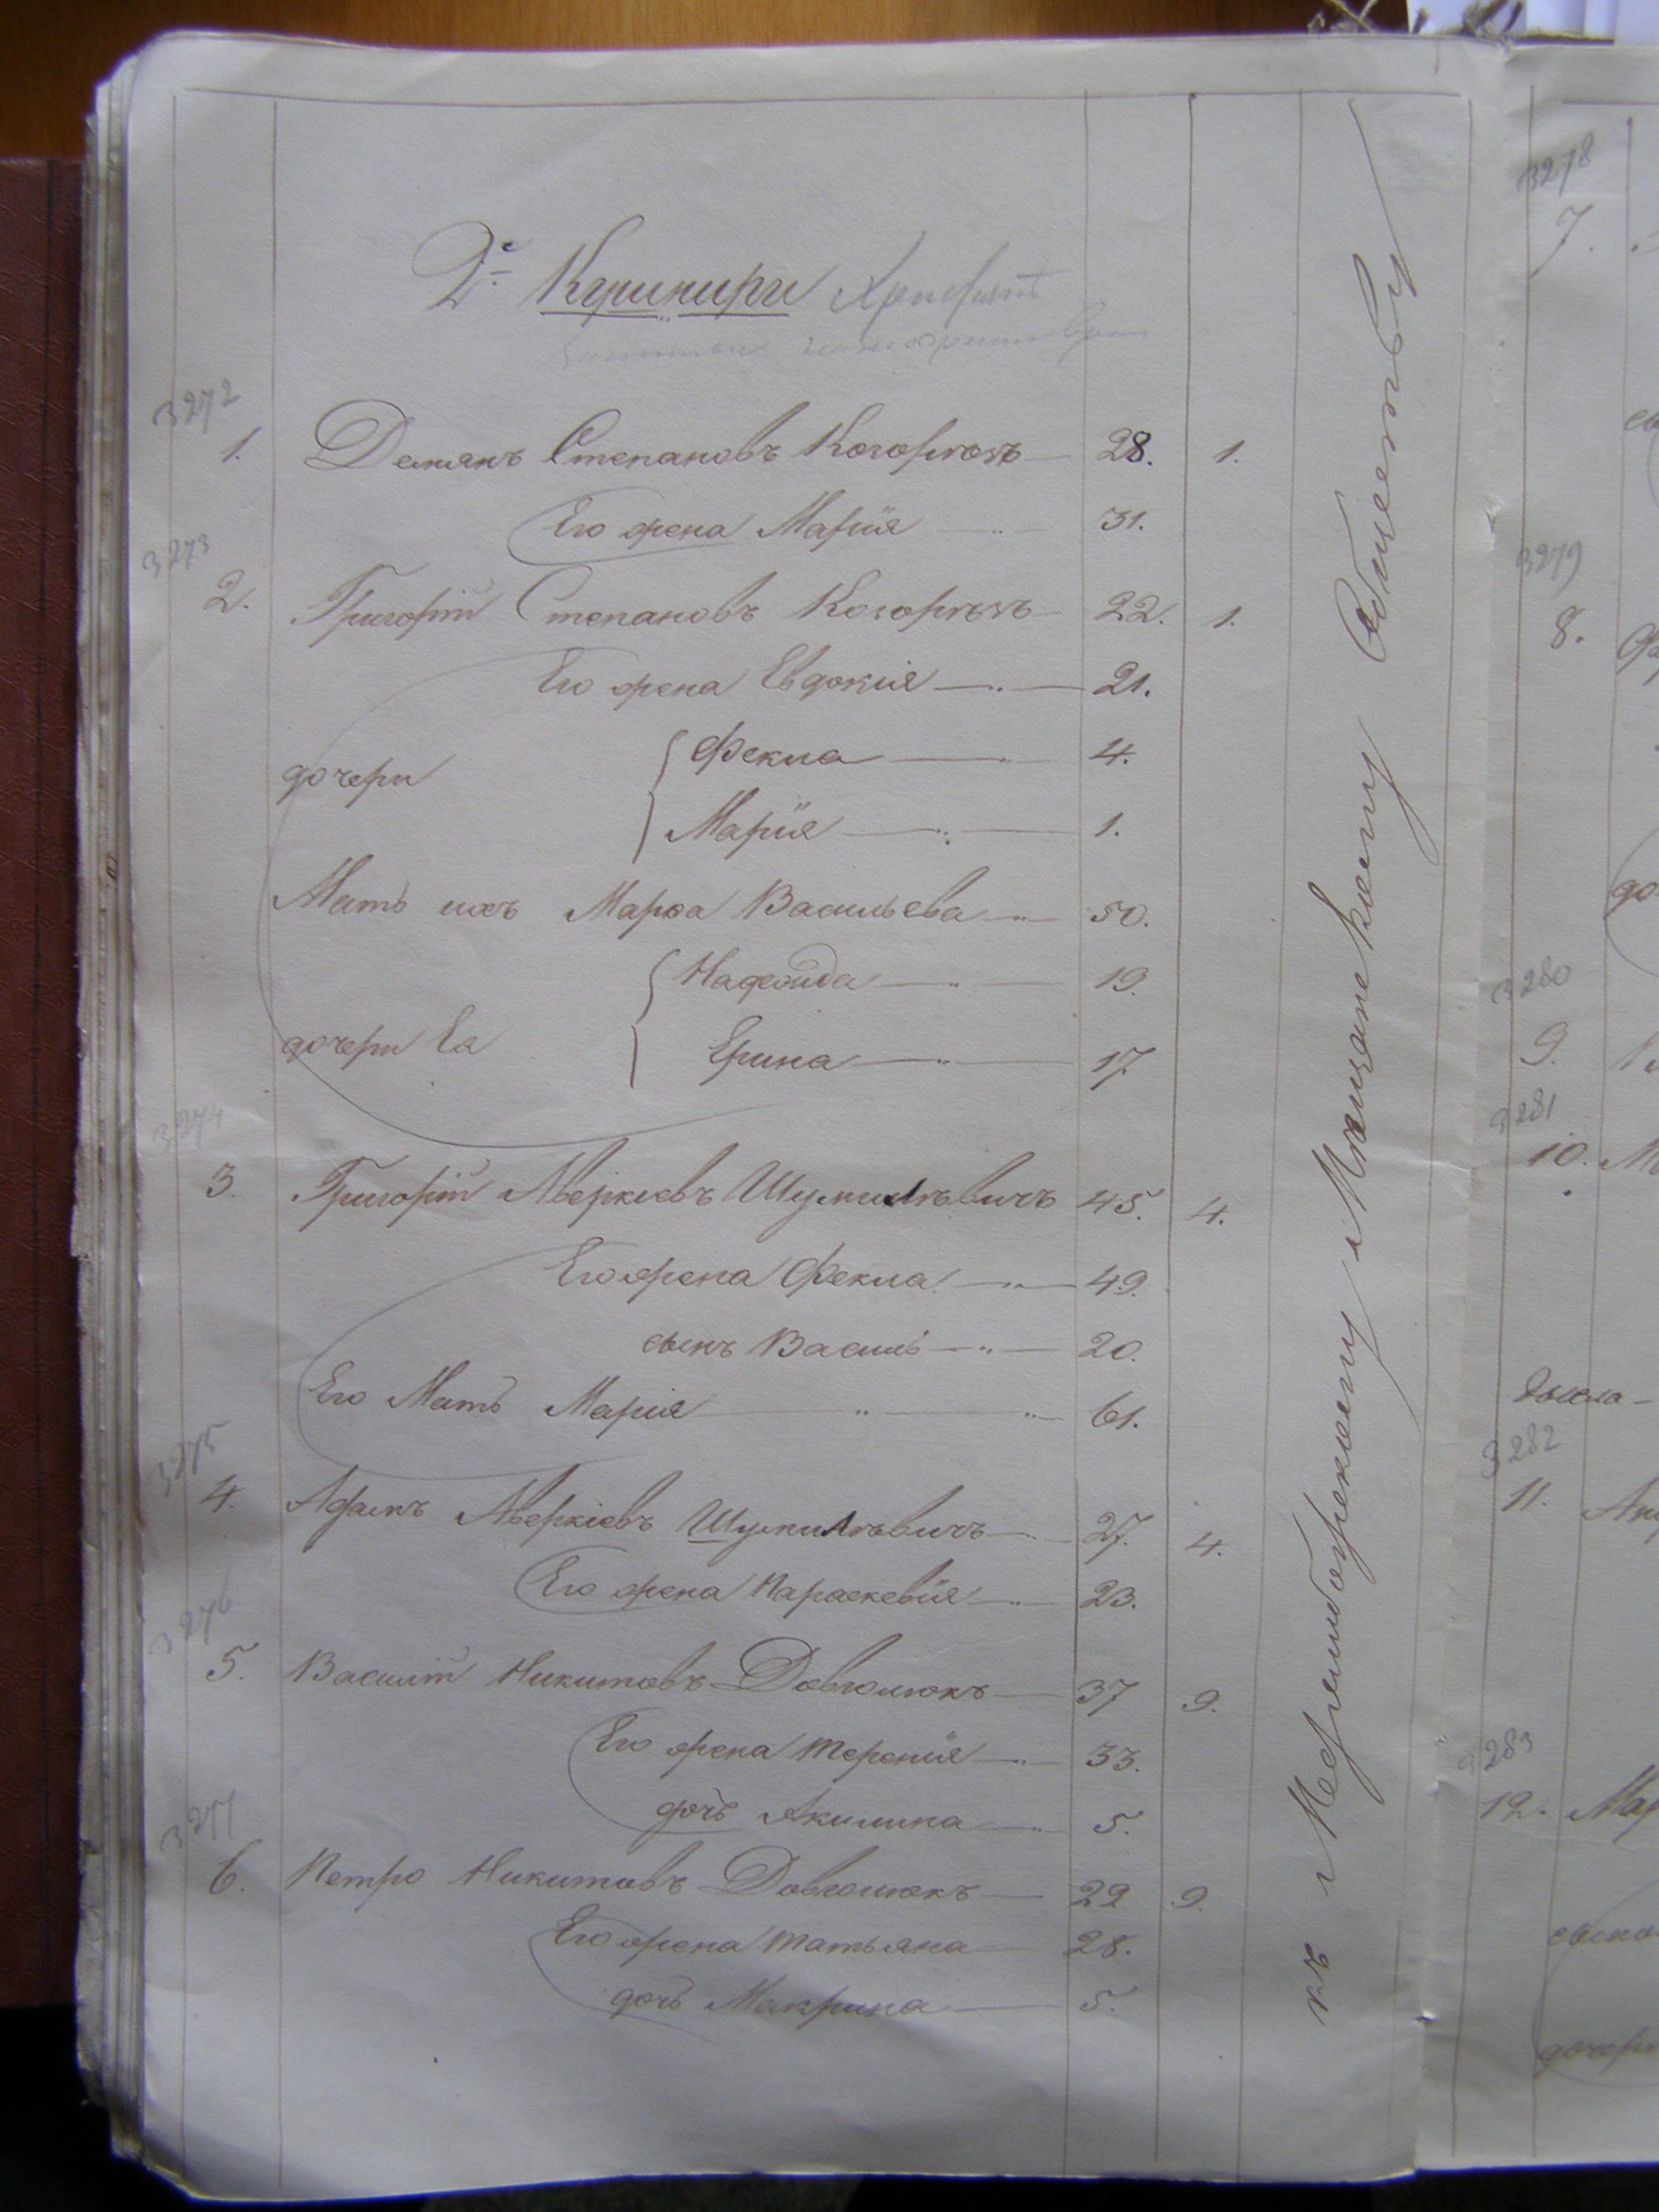 Дᵉ
3272
1. Демянъ Степановъ Козорѣзъ — 28. 1.
Его жена Марія — 31.
3273
2. Григорій Степановъ Козорѣзъ — 22. 1.
Его жена Евдокія — 21.
дочери { Фекла — 4.
Марія — 1.
Мать ихъ Марѳа Васильева — 50.
{ Надежда — 19.
дочери Ея Ерина — 17.
3274
3. Григорій Аверкіевъ Шумилѣвичъ 45. 4.
Его жена Фекла — 49.
сынъ Василь — 20.
Его Мать Марія — 61.
3275
4. Адамъ Аверкіевъ Шумилѣвичъ — 27. 4.
Его жена Параскевія — 23.
3276
5. Василій Никитовъ Довголюкъ — 37 9.
Его жена — 33.
дочь Акилина — 5.
3277
6. Петро Никитовъ Довголюкъ — 29 9.
Его жена Татьяна — 28.
дочь Макрина — 5.
къ Меджибожскому Мещанскому Обществу
3278
7.
3279
8.
3280
9.
3281
10.
3282
11.
3283
12. Мар